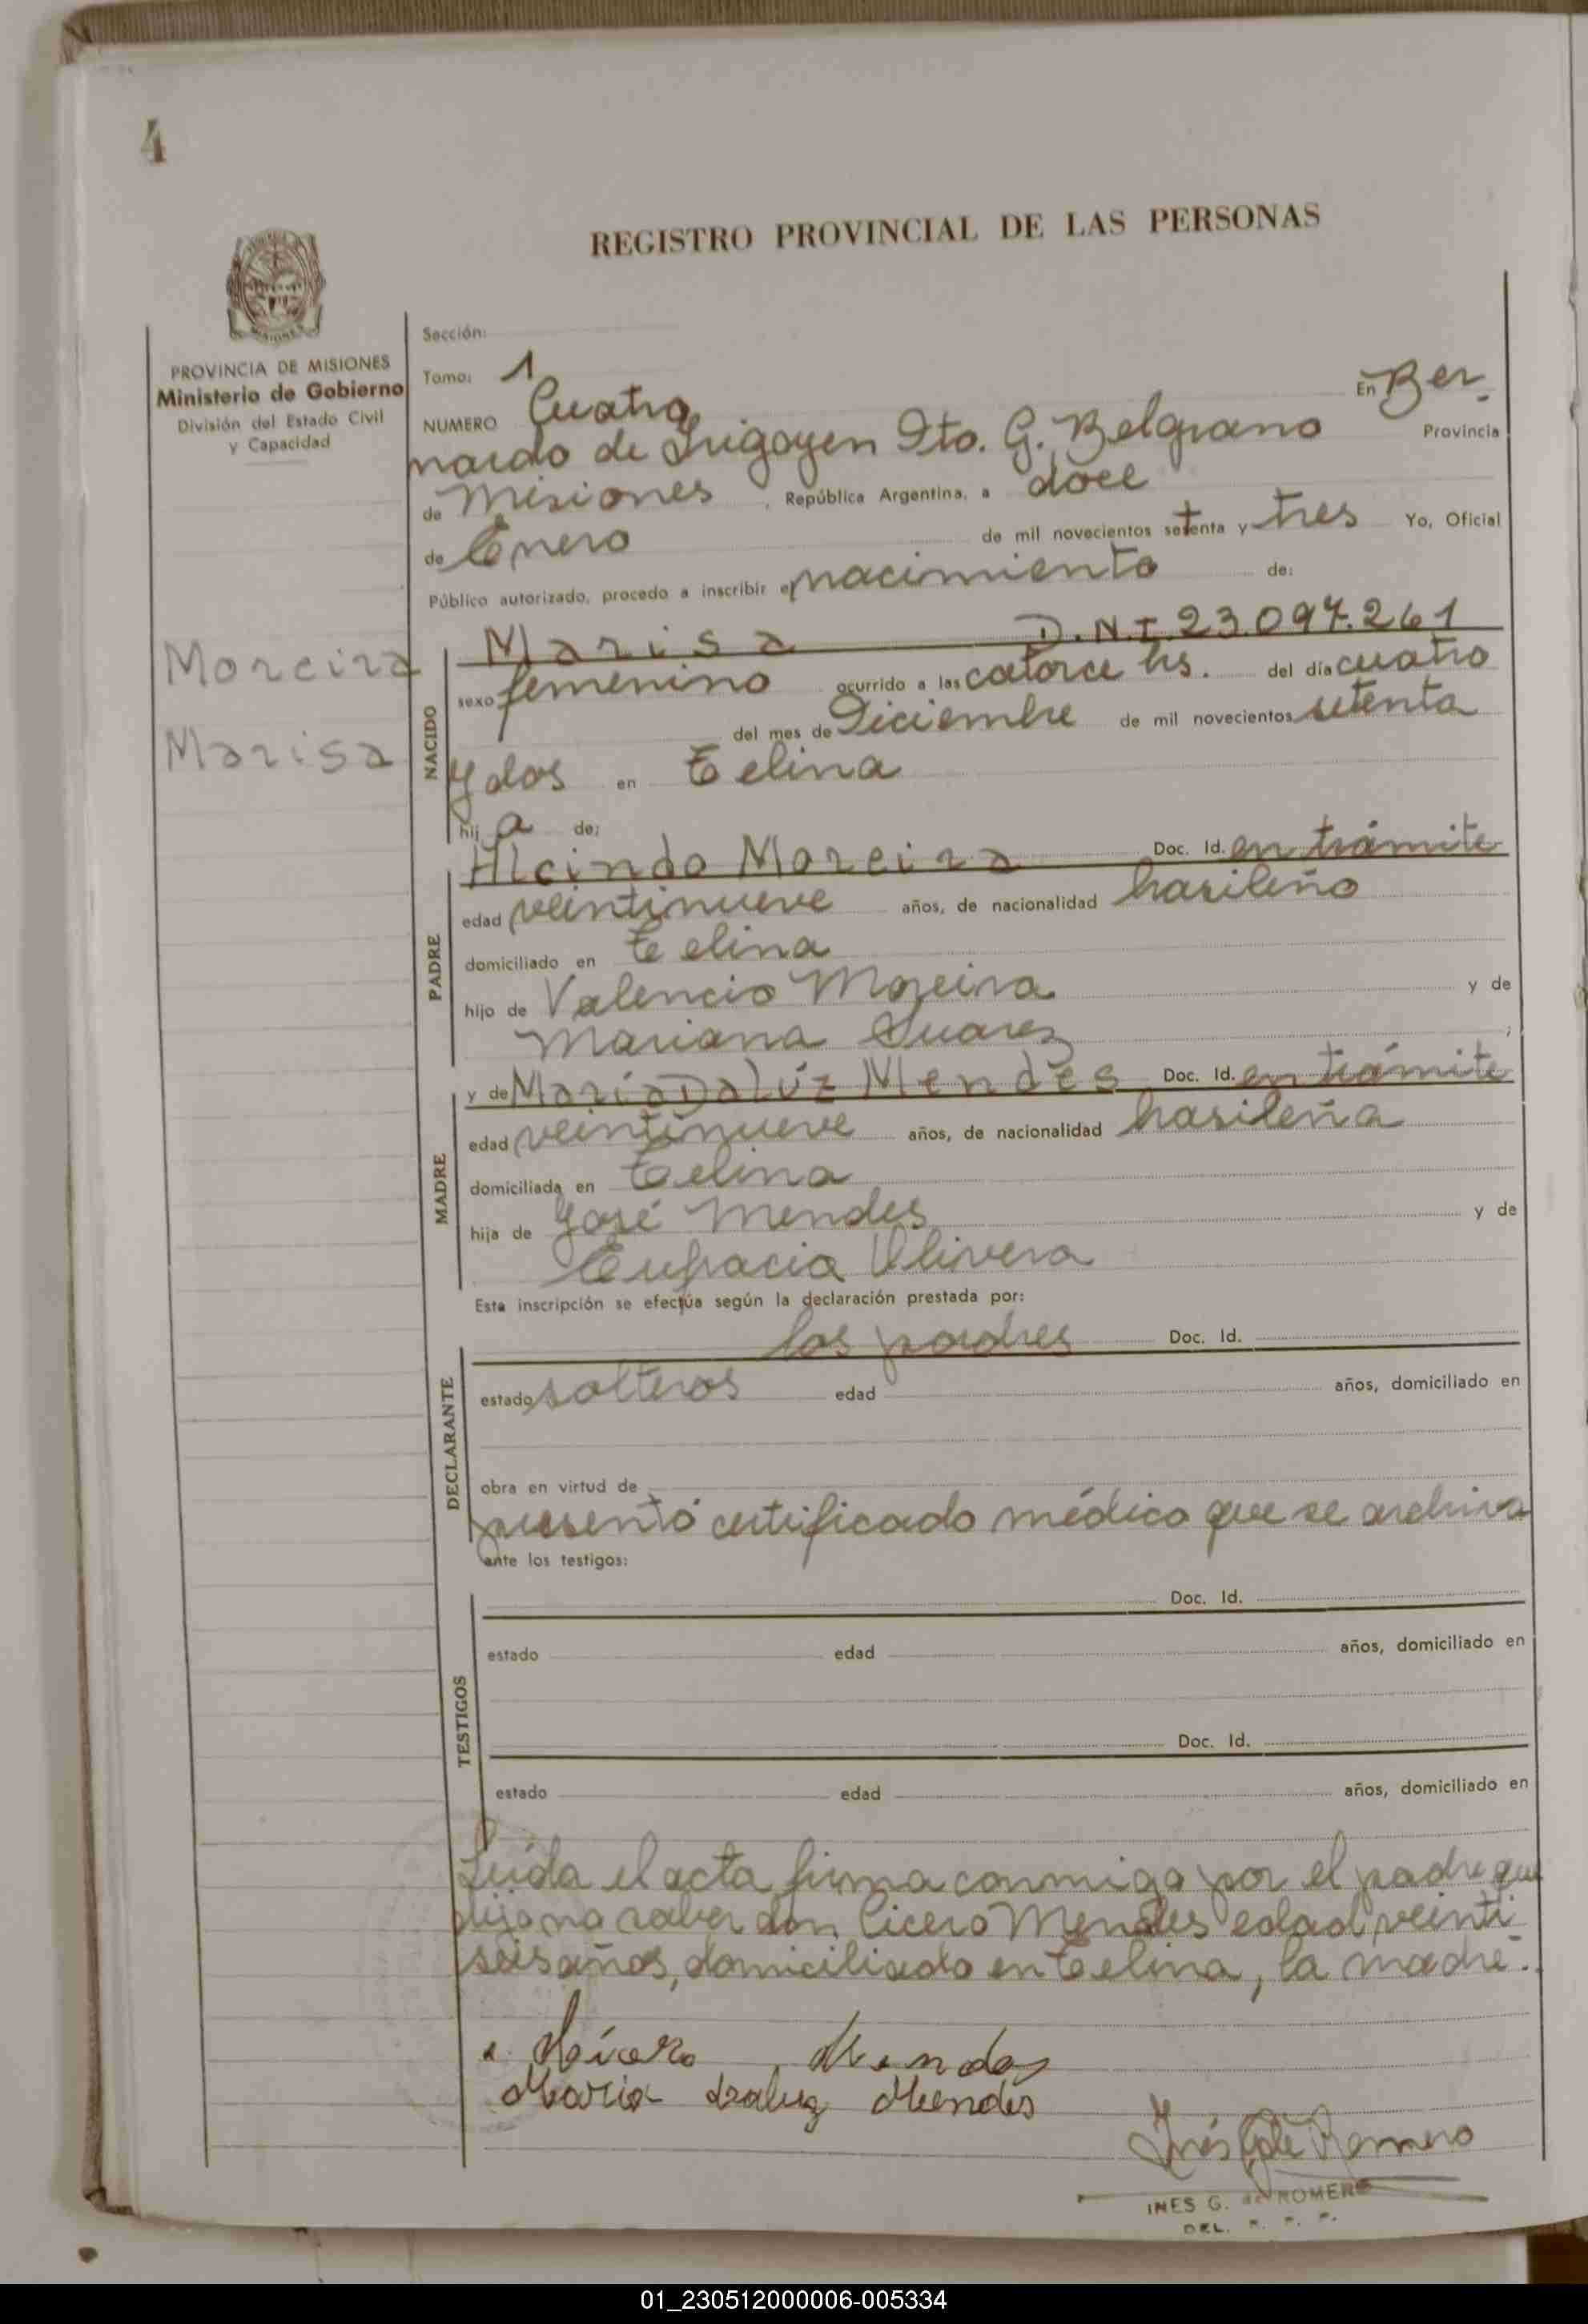 4
REGISTRO PROVINCIAL DE LAS PERSONAS
PROVINCIA DE MISIONES
Ministerio de Gobierno
División del Estado Civil
y Capacidad
Moreira
Marisa
Sección:
Tomo: 1
NUMERO Cuatro En Ber-
nardo de Irigoyen Dto. G. Belgrano Provincia
de Misiones, República Argentina, a doce
de Enero de mil novecientos setenta y tres Yo, Oficial
Público autorizado, procedo a inscribir el nacimiento de:
NACIDO
Marisa D.N.I. 23.097.261
sexo femenino ocurrido a las catorce hs. del día cuatro
del mes de Diciembre de mil novecientos setenta
y dos en Celina
hij a de:
PADRE
Alcindo Moreira Doc. Id. en trámite
edad veintinueve años, de nacionalidad brasileño
domiciliado en Celina
hijo de Valencio Moreira y de
Mariana Suarez ;
MADRE
y de María Daluz Mendes Doc. Id. en trámite
edad veintinueve años, de nacionalidad brasileña
domiciliada en Celina
hija de José Mendes y de
Eufracia Olivera
Esta inscripción se efectúa según la declaración prestada por:
DECLARANTE
los padres Doc. Id.
estado solteros edad años, domiciliado en
obra en virtud de
presentó certificado médico que se archiva
ante los testigos:
TESTIGOS
Doc. Id.
estado edad años, domiciliado en
Doc. Id.
estado edad años, domiciliado en
Leída el acta firma conmigo por el padre que
dijo no saber don Cicero Mendes edad veinti
seis años, domiciliado en Celina, la madre.
Mendes
Maria Daluz Mendes
Inés G. de Romero
INES G. de ROMERO
DEL. R. P. P.
01_230512000006-005334